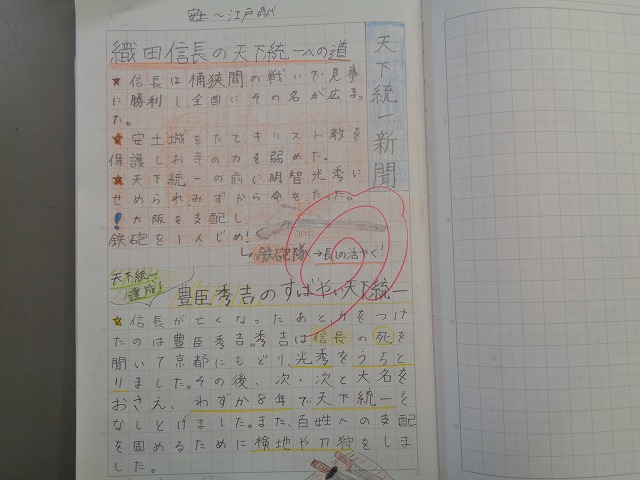 安土～江戸時代
天下統一新聞
織田信長の天下統一への道
★信長は桶狭間の戦いで見事
に勝利し全国にその名が広まっ
た。
★安土城をたて、キリスト教を
保護しお寺の力を弱めた。
★天下統一の前に明智光秀に
せめられみずから命をたった。
!大阪を支配し、
鉄砲を1人じめ!
↳鉄砲隊→長しの活やく!
天下統一
達成!
豊臣秀吉のすばやい天下統一
★信長が亡くなったあと、力をつけ
たのは豊臣秀吉。秀吉は信長の死を
聞いて京都にもどり、光秀をうちと
りました。その後、次・次と大名を
おさえ、わずか8年で天下統一を
なしとげました。また、百姓への支配
を固めるために検地や刀狩をしま
した。